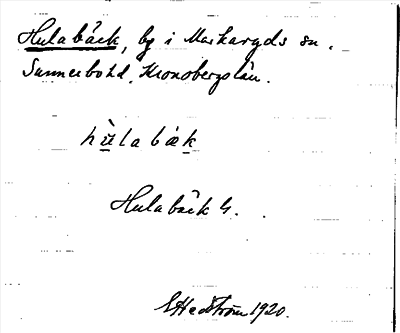 Hulabäck, by i Markaryds sn.
Sunnerbo hd, Kronobergs län.
hùlabäk
Hulabäck G.
E Hedström 1920.